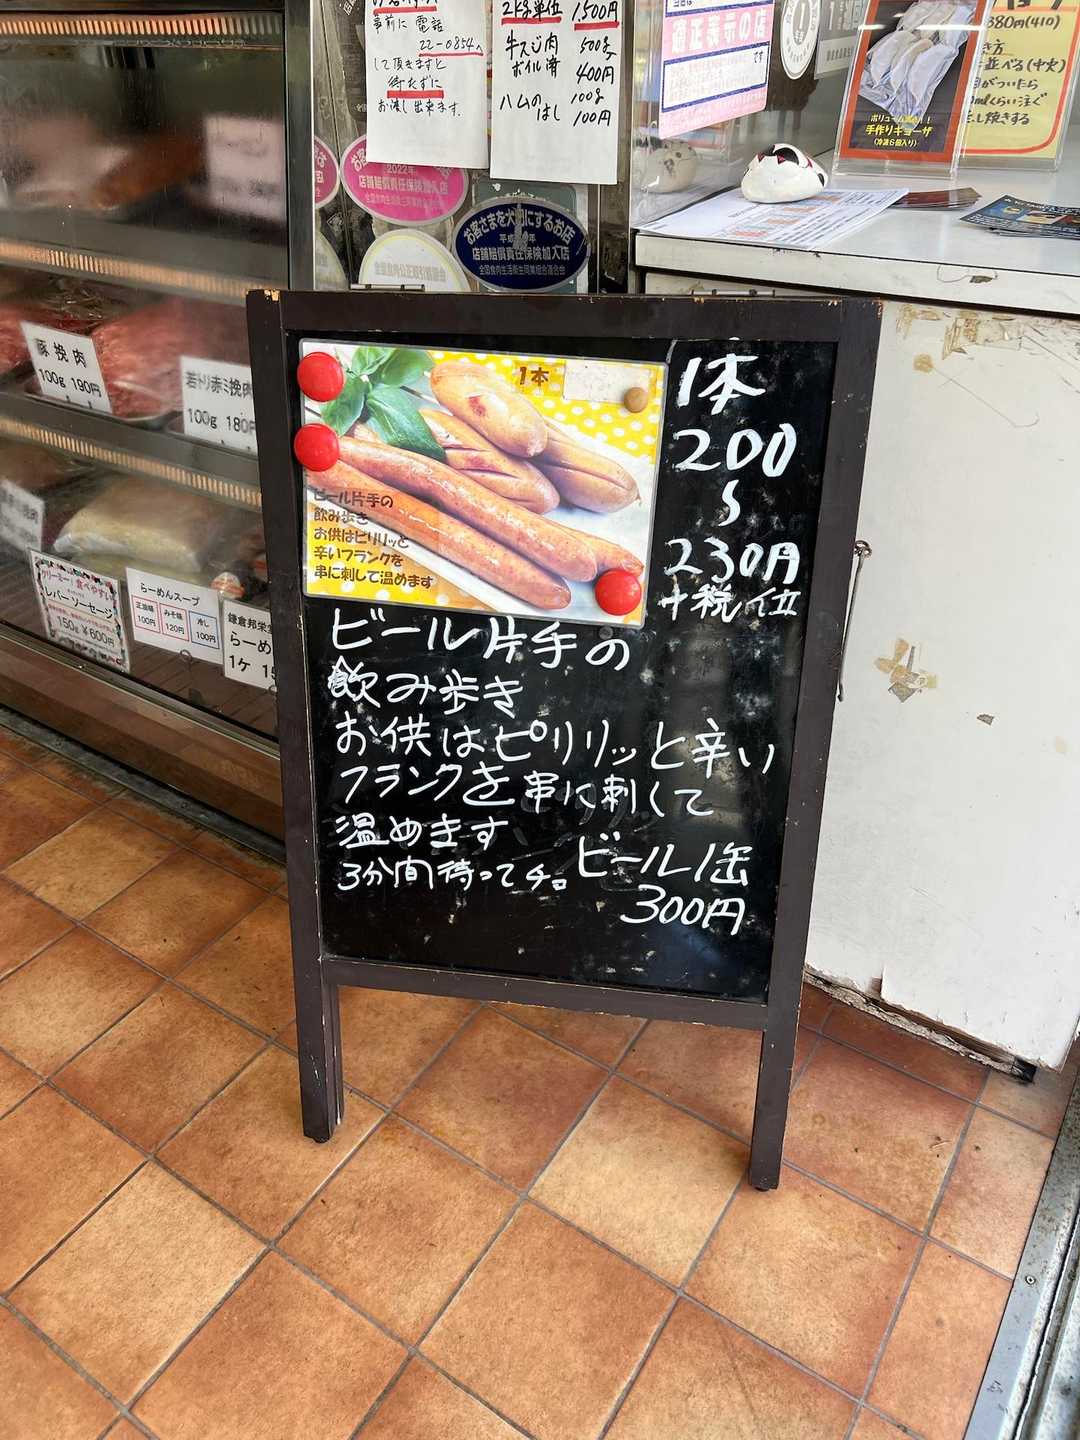 事前に 電話
22-0854へ
して頂きますと
待たずに
お渡し出来ます.
2kg単位 1,500円
牛スジ肉 500g
ボイル済 400円
ハムのはし 100g
100円
適正表示の店
です
380円(410)
き方
並べる(中央)
がついたら
くらい注ぐ
し焼きする
ボリューム満点!!
手作りギョーザ
(冷凍6個入り)
2022年
店舗賠償責任保険加入店
全国食肉生活衛生同業組合連合会
お客さまを大切にするお店
店舗賠償責任保険加入店
全国食肉生活衛生同業組合連合会
全国食肉公正取引協議会
豚挽肉
100g 190円
若トリ赤ミ挽肉
100g 180円
クリーミー!食べやすい
レバーソーセージ
150g ¥600円
らーめんスープ
正油味
100円
みそ味
120円
冷し
100円
鎌倉邦栄堂
らーめ
1ケ
1本
ビール片手の
飲み歩き
お供はピリリッと
辛いフランクを
串に刺して温めます
1本
200
〜
230円
+税位
ビール片手の
飲み歩き
お供はピリリッと辛い
フランクを串に刺くて
温めます
3分間待ってチョ
ビール1缶
300円